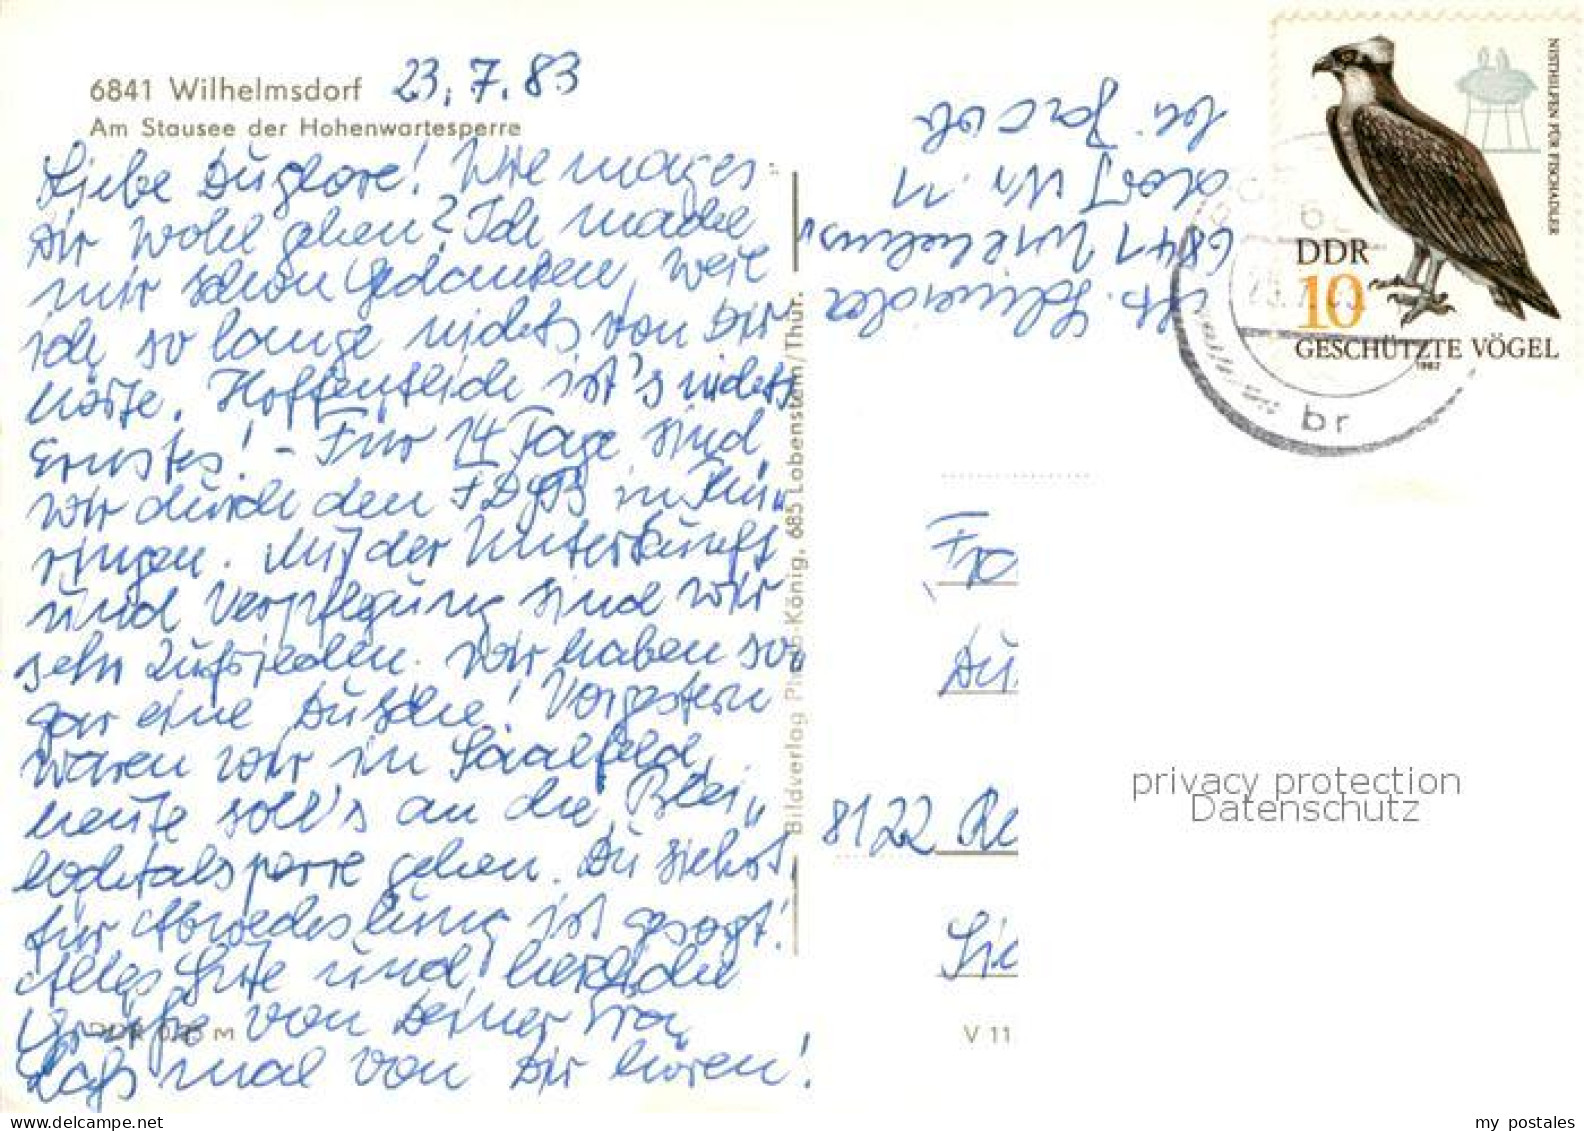 6841 Wilhelmsdorf 23.7.83
Am Stausee der Hohenwartesperre
Liebe Duglore! Wie mag es
Dir wohl gehen? Ich mache
mir schon Gedanken, weil
ich so lange nichts von Dir
hörte. Hoffentlich ist's nichts
Ernstes! - Für 14 Tage sind
wir durch den FDGB in Thü„
ringen. Mit der Unterkunft
und Verpflegung sind wir
sehr zufrieden. Wir haben so„
gar eine Dusche! Vorgestern
waren wir in Saalfeld,
heute soll's an die Blei„
lochtalsperre gehen. Du siehst,
für Abwechslung ist gesorgt!
Alles Gute und herzliche
Grüße von Deiner
Laß mal von Dir hören!
DDR 0,25 M
Bildverlag Photo-König, 685 Lobenstein/Thür.
Schneider
6841 Wilhelms„
dorf Nr. 11
bei Jacob
NISTHILFEN FÜR FISCHADLER
DDR
10
GESCHÜTZTE VÖGEL
1982
br
Fra
8122 Ra
V 11
privacy protection
Datenschutz
my postales